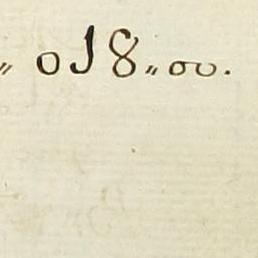 „ 018„00.